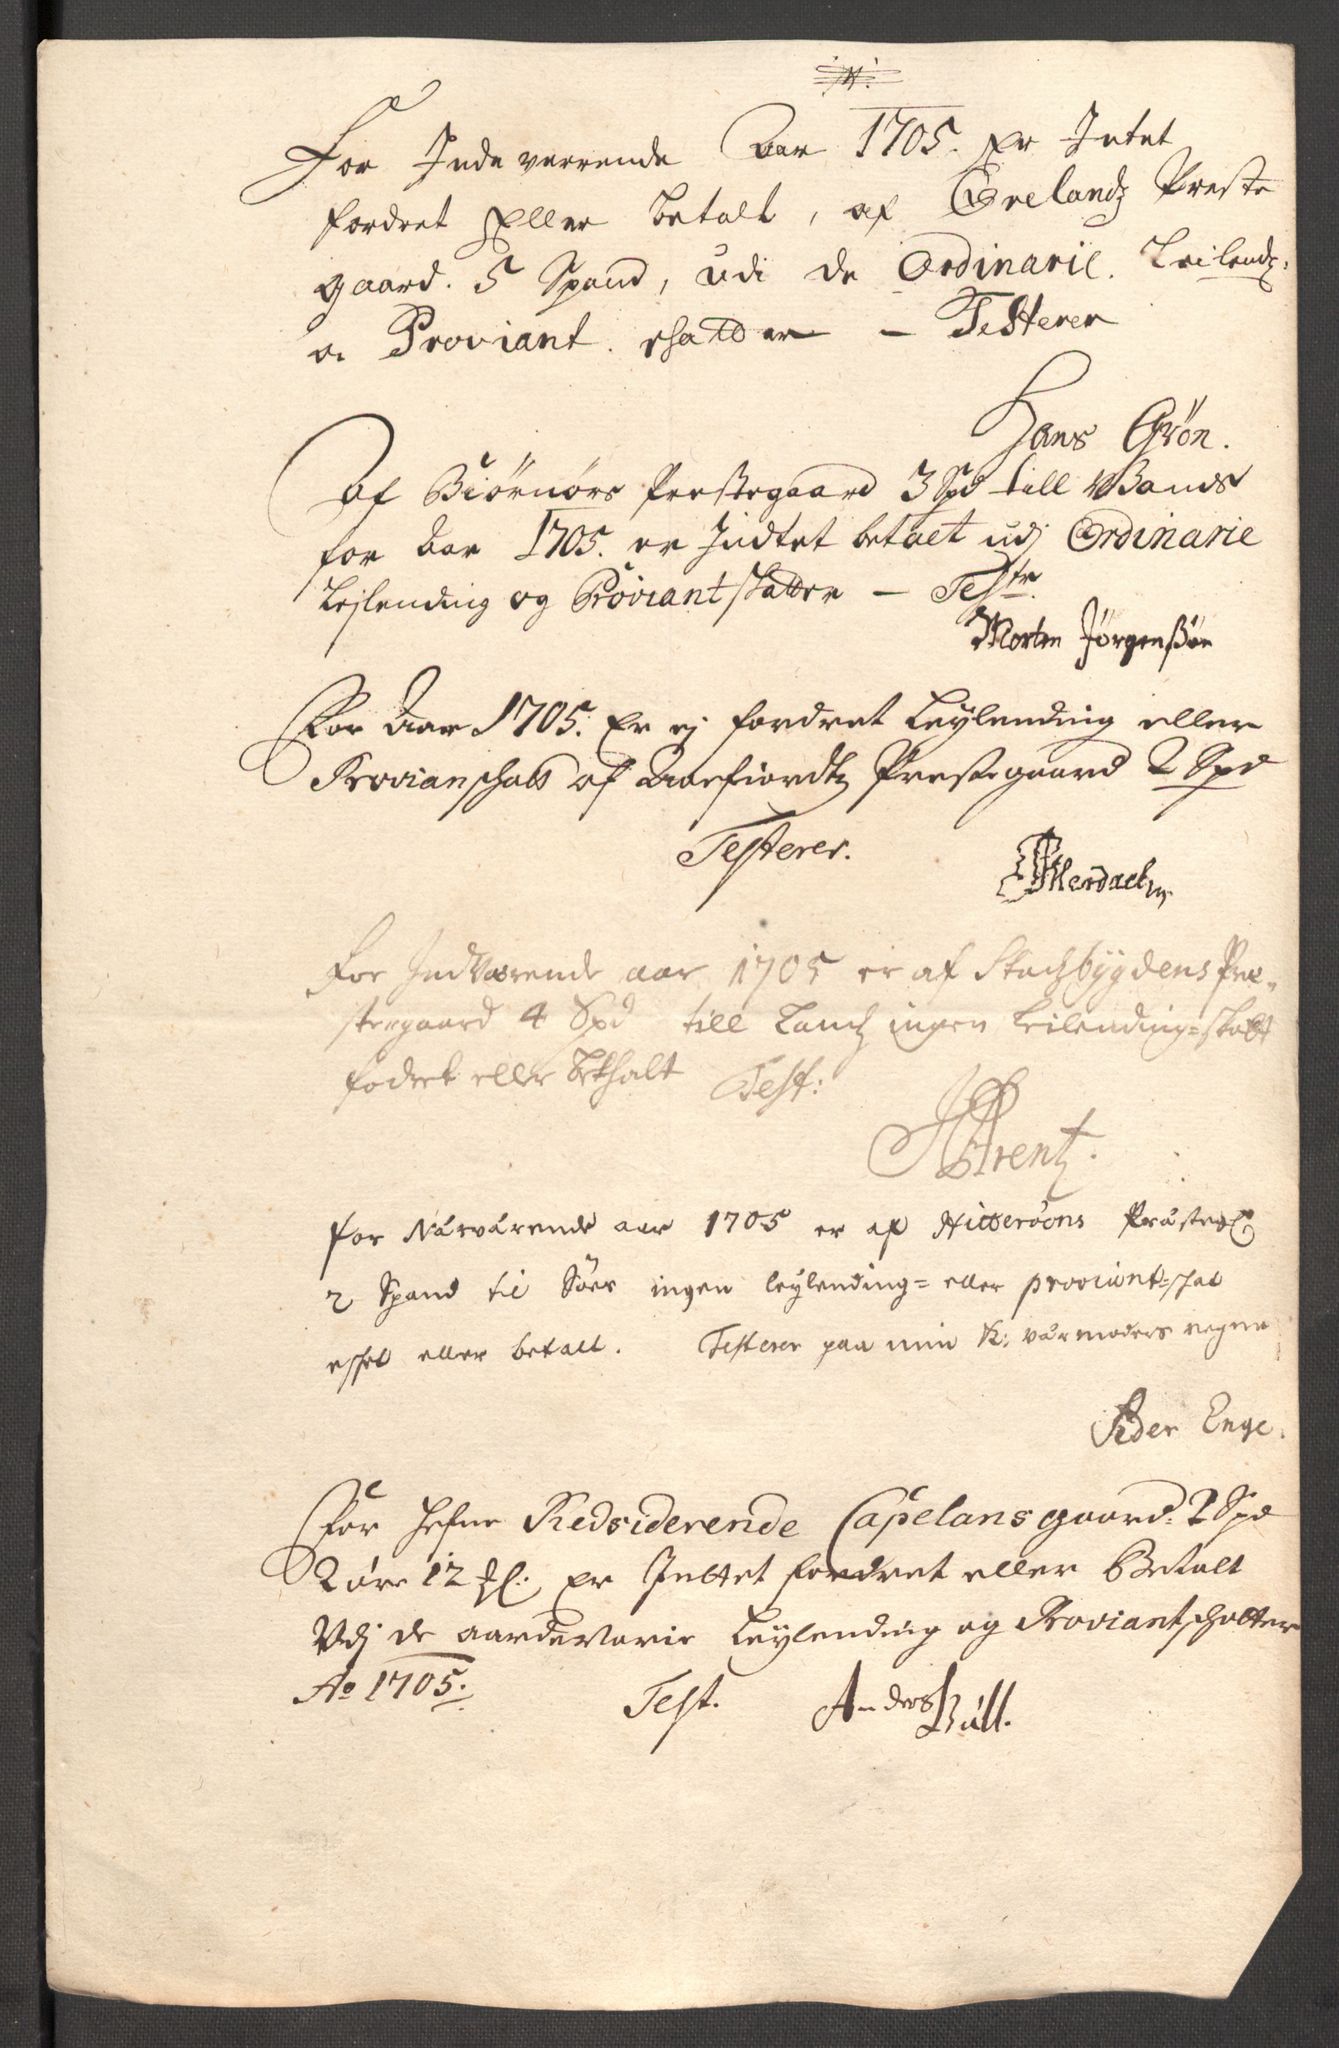 For Inde verrende Aar 1705. Er Intet
fordret Eller betalt, af Ørelandz Preste
gaard. 5 Spand, Udi de Ordinarie. Leilendz:
oc Proviant. schatter — Testerer
Hans Grøn.
Af Biørnørs Prestegaard 3 Spd till Bands
for Aar 1705. er Indtet betalt udj Ordinarie
Lejlending og Proviant skatter — Testr.
Morten Jørgensøn
For Aar 1705. Er ej fordret Leylending eller
Provianschatt af Aaefiordtz Prestegaard 2 Spd
Testerer.
For IndVærende aar 1705 er af Stachbygdens Præ-
stegaard 4 Spd till Landz ingen Leilending-skatt
fodret eller bethalt Test:
Arentz.
for Nærværende aar 1705 er af Hitterøens Præstegl
2 Spand til Søes ingen leylending- eller proviant-schat
esket eller betalt. Testerer paa min K: værmoders vegne
Peder Enge.
For Hefne Redsiderende Capelans gaard. 2 Spd
2 øre 12 Ml: Er Inttet fordret eller Betalt
Vdj de aardevarie Leylending og Proviantschatter
Ao 1705. Test. Anders Bull.